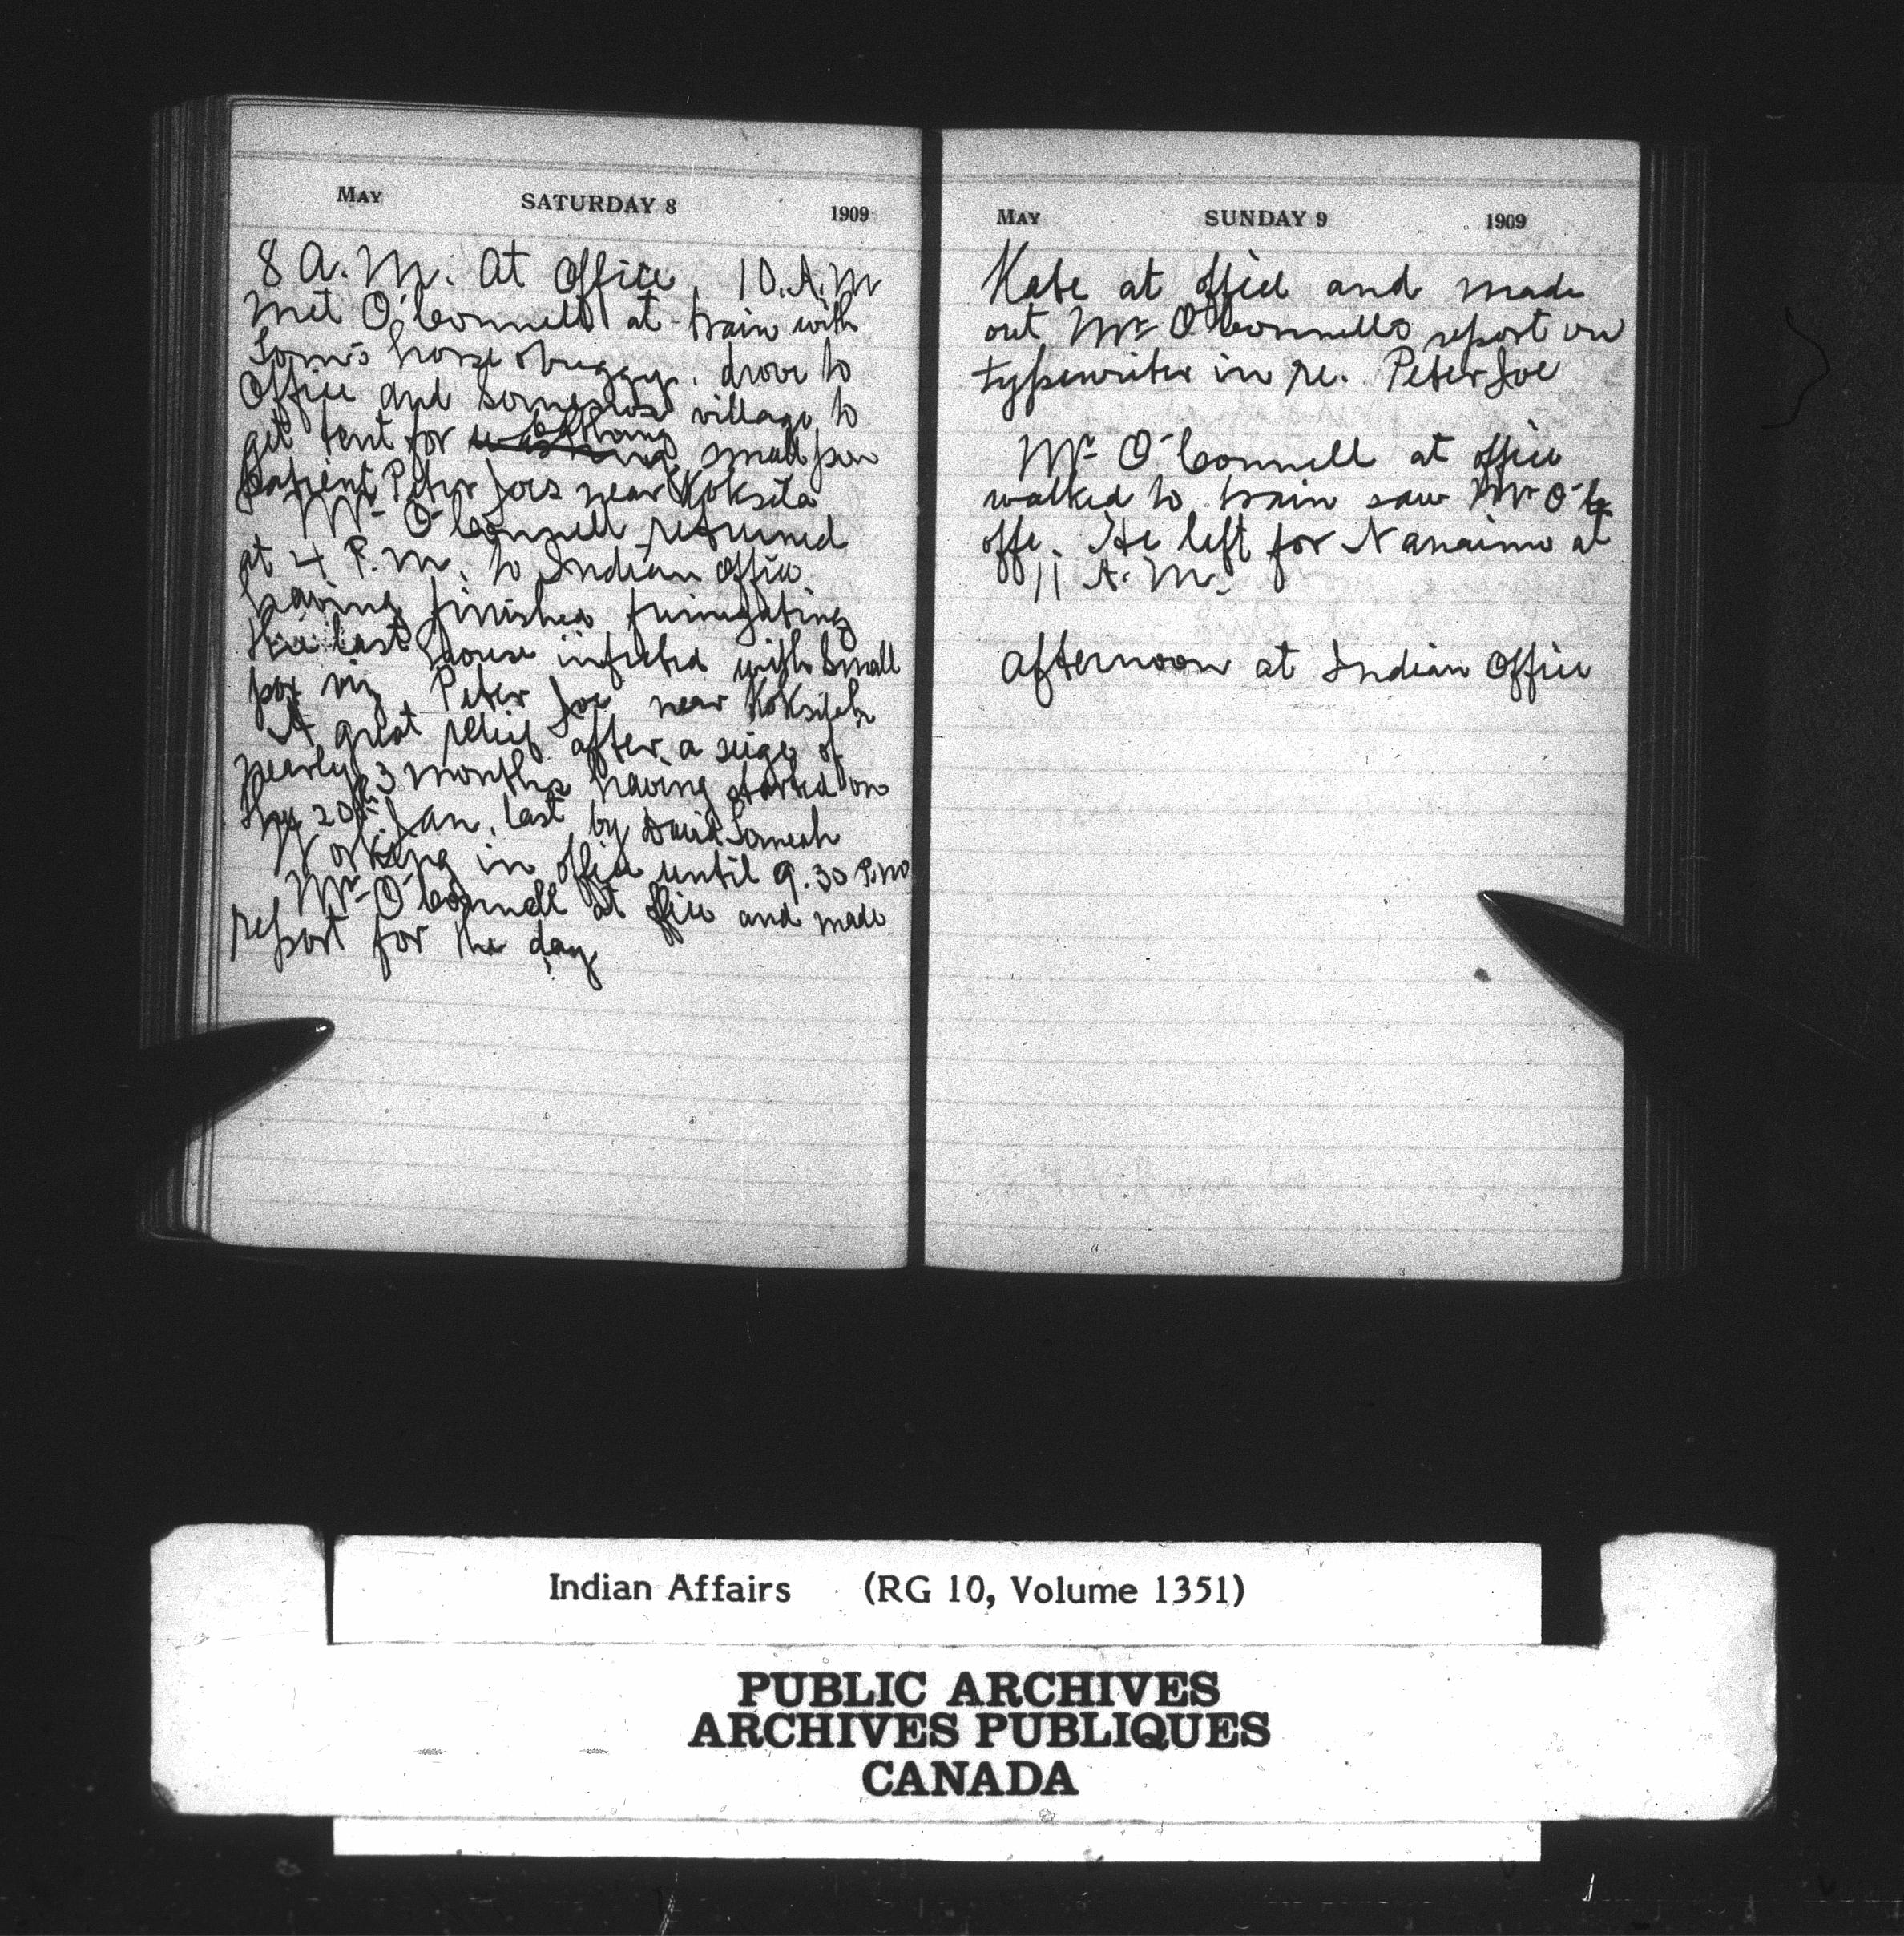 May SATURDAY 8 1909
8 A.M. At Office, 10.A.M
Met O'Connell at train with
Tom's horse & buggy. drove to
Office and Somenos village to
get tent for bathing small pox
patient Peter Joes near Koksila
Mr O'Connell returned
at 4 P.M. to Indian Office
having finished fumigating
the last house infected with Small
pox viz Peter Joe near Koksilah
A great relief after a seige of
nearly 3 months having started on
the 20th Jan. last by David
Working in office until 9.30 P.M
Mr O'Connell at office and made
report for the day
May SUNDAY 9 1909
Kate at office and made
out Mr O'Connells report on
typewriter in re. Peter Joe
Mr O'Connell at office
walked to train saw Mr O'C
off. He left for Nanaimo at
11 A.M.
Afternoon at Indian Office
Indian Affairs (RG 10, Volume 1351)
PUBLIC ARCHIVES
ARCHIVES PUBLIQUES
CANADA